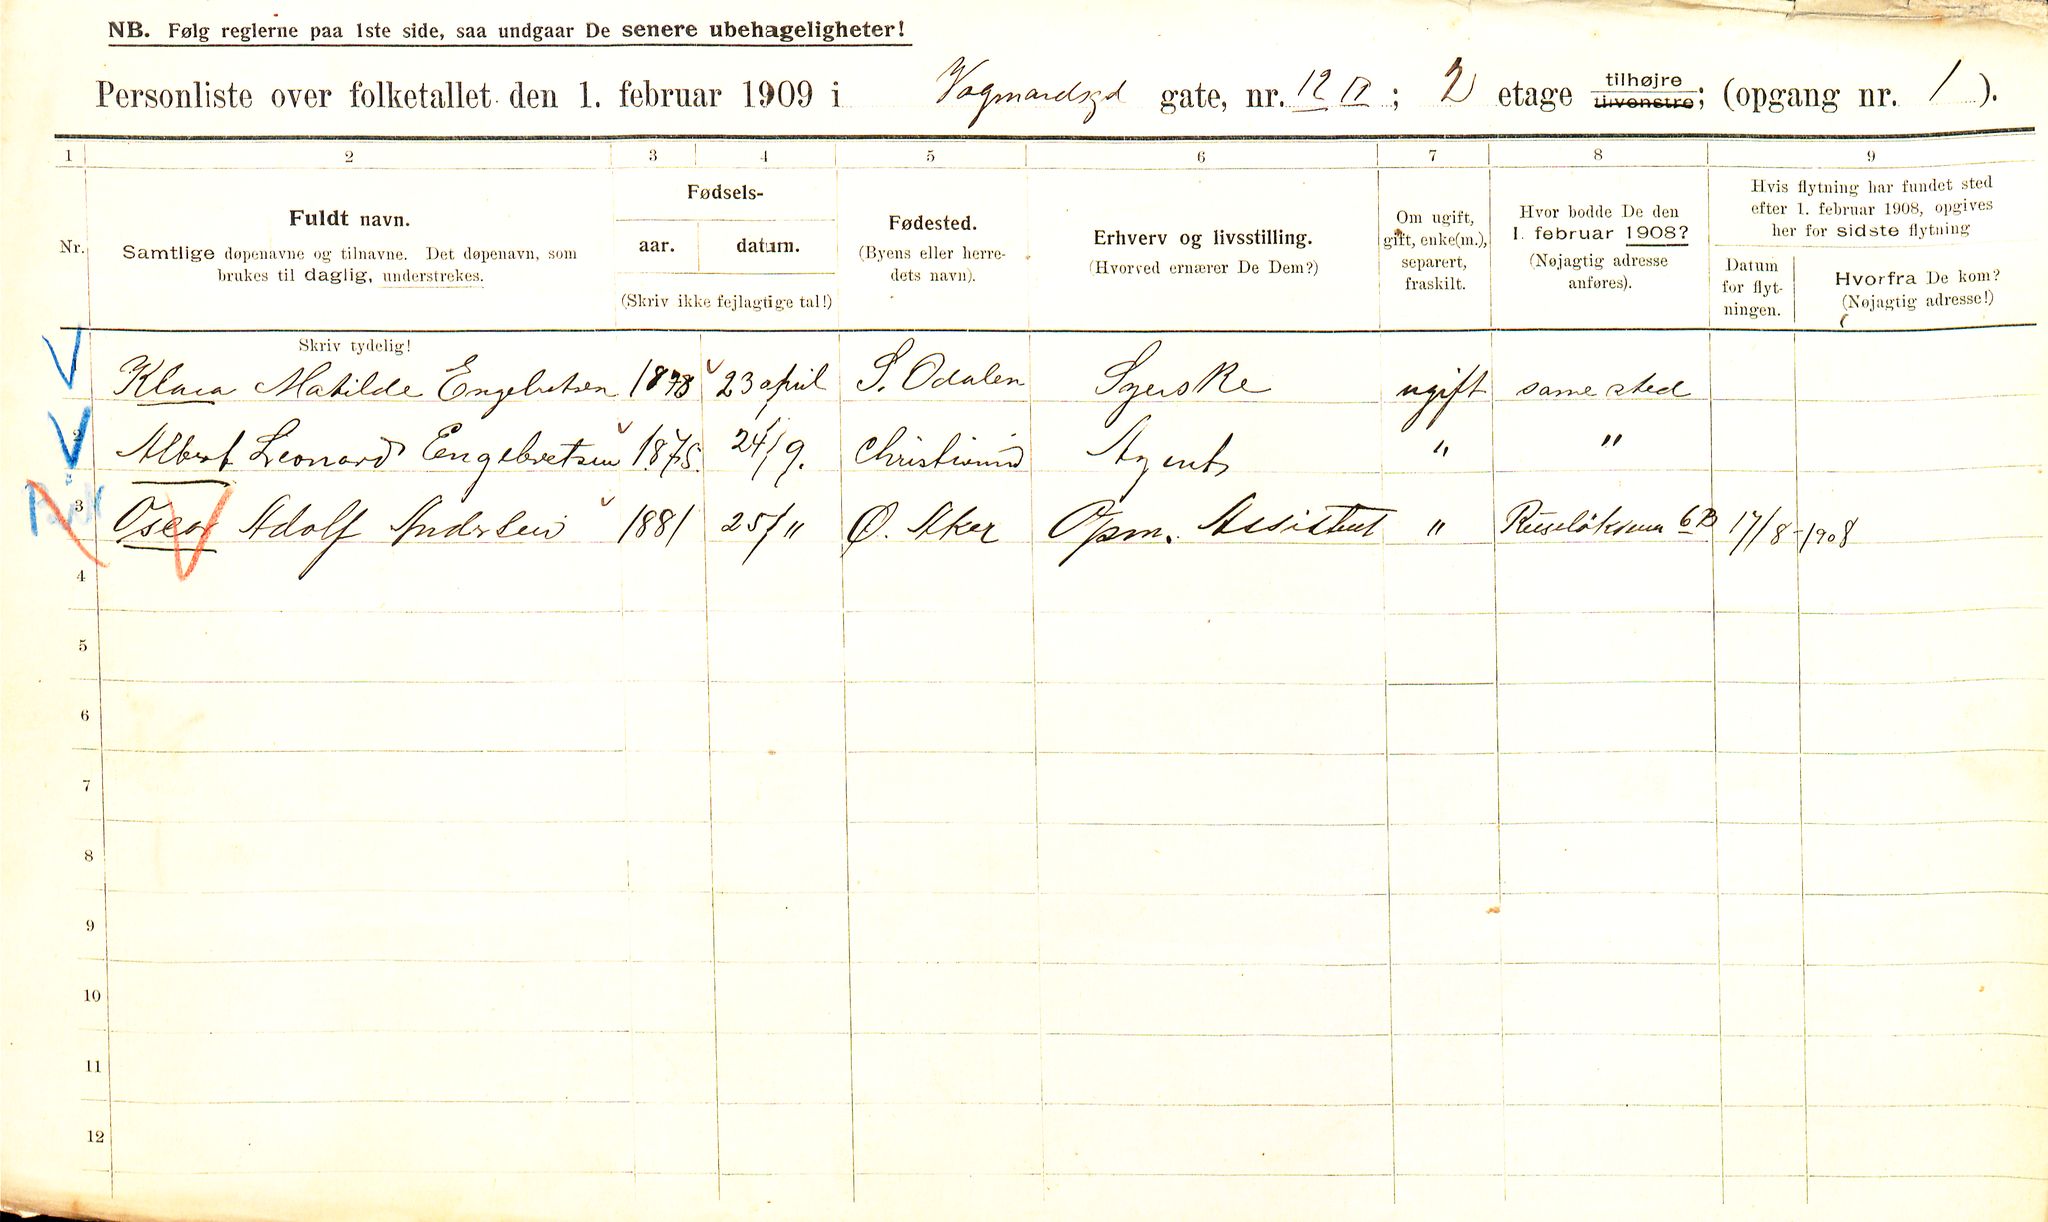 NB. Følg reglerne paa 1ste side, saa undgaar De senere ubehageligheter!
Personliste over folketallet den 1. februar 1909 i Vognmandsgd gate, nr. 12 II; 2 etage tilhøjre tilvenstre; (opgang nr. 1).
1 2 3 4 5 6 7 8 9
Nr.
Fuldt navn.
Samtlige døpenavne og tilnavne. Det døpenavn, som
brukes til daglig, understrekes.
Fødsels-
aar. datum.
(Skriv ikke fejlagtige tal!)
Fødested.
(Byens eller herre-
dets navn).
Erhverv og livsstilling.
(Hvorved ernærer De Dem?)
Om ugift,
gift, enke(m.),
separert,
fraskilt.
Hvor bodde De den
1. februar 1908?
(Nøjagtig adresse
anføres).
Hvis flytning har fundet sted
efter 1. februar 1908, opgives
her for sidste flytning
Datum
for flyt-
ningen.
Hvorfra De kom?
(Nøjagtig adresse!)
Skriv tydelig!
Klara Matilde Engebretsen 1878 23 april S. Odalen Syerske ugift samme sted
2 Albert Leonard Engebretsen 1875. 24/9. Agent " "
3 Oscar Adolf Andersen 1881 25/" Ø. Aker Opm. Assistent " 6B 17/8-1908
4
5
6
7
8
9
10
11
12